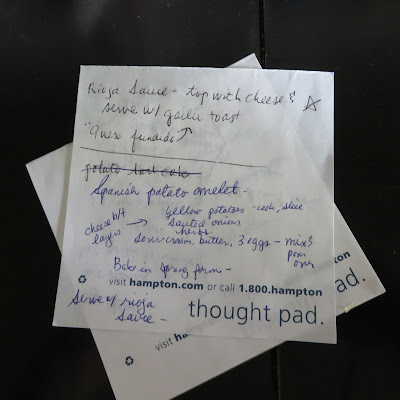 Rioja Sauce - top with cheese &
serve w/ garlic toast
"Quex fundido"
potato
Spanish potato omelet -
cheese b/t
layers
yellow potatoes - cook, slice
sauteed onions
sour cream, butter, 3 eggs - mix &
pour
over
Bake in spring form -
visit hampton.com or call 1.800.hampton
Serve w/ rioja
Sauce -
thought pad.
hampton
visit ha
pad.